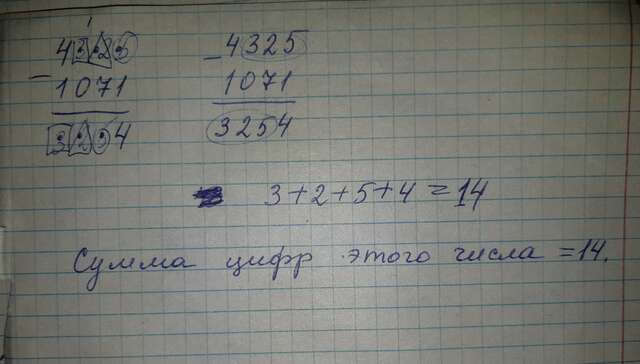 1
4325
− 1071
3254
− 4325
1071
3254
3+2+5+4=14
Сумма цифр этого числа =14.